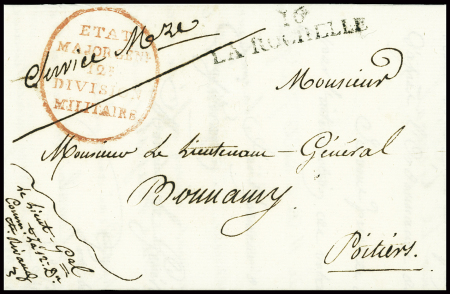 ETAT
MAJOR GENL
12E
DIVISION
MILITAIRE
Service Mre
16
LA ROCHELLE
Monsieur
Monsieur Le Lieutenant-Général
Bonnamy
Poitiers.
Le Lieut-Gal
Comm. La 12e Don